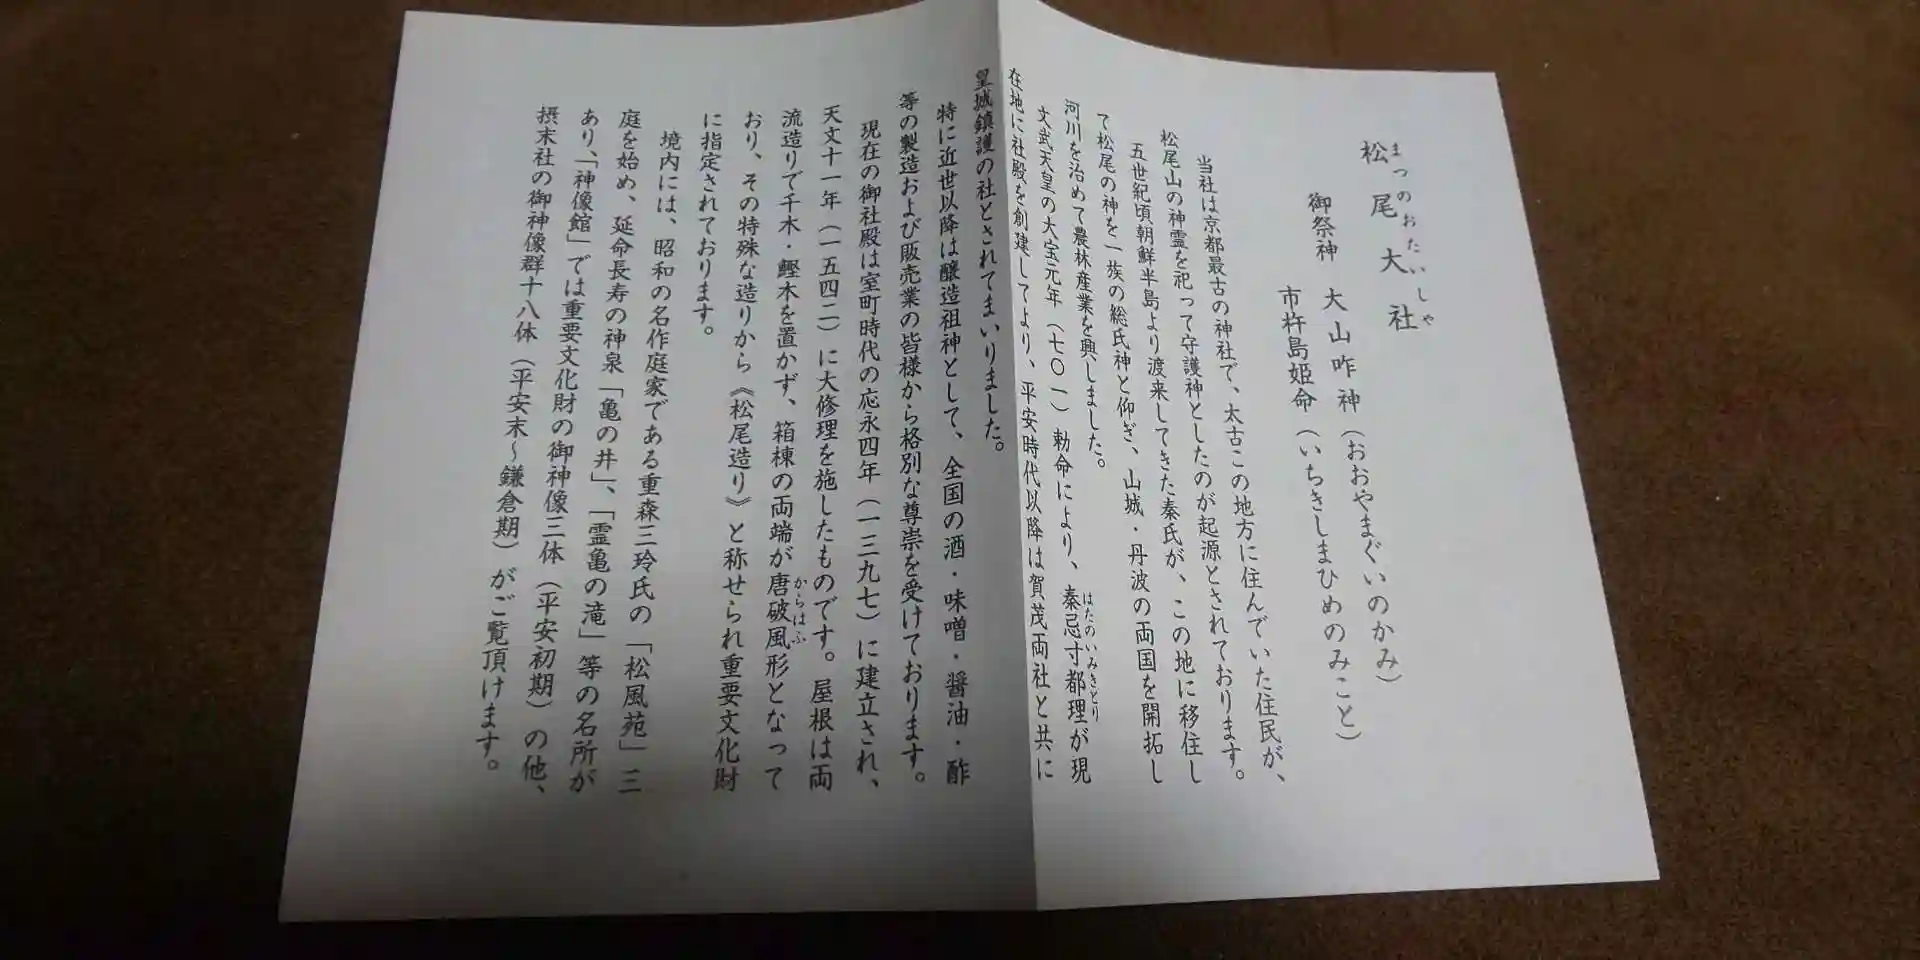 松尾大社
まつのおたいしゃ
御祭神 大山咋神（おおやまぐいのかみ）
市杵島姫命（いちきしまひめのみこと）
当社は京都最古の神社で、太古この地方に住んでいた住民が、
松尾山の神霊を祀って守護神としたのが起源とされております。
五世紀頃朝鮮半島より渡来してきた秦氏が、この地に移住し
て松尾の神を一族の総氏神と仰ぎ、山城・丹波の両国を開拓し
河川を治めて農林産業を興しました。
文武天皇の大宝元年（七〇一）勅命により、秦忌寸都理が現
はたのいみきとり
在地に社殿を創建してより、平安時代以降は賀茂両社と共に
皇城鎮護の社とされてまいりました。
特に近世以降は醸造祖神として、全国の酒・味噌・醤油・酢
等の製造および販売業の皆様から格別な尊崇を受けております。
現在の御社殿は室町時代の応永四年（一三九七）に建立され、
天文十一年（一五四二）に大修理を施したものです。屋根は両
流造りで千木・鰹木を置かず、箱棟の両端が唐破風形となって
からはふ
おり、その特殊な造りから《松尾造り》と称せられ重要文化財
に指定されております。
境内には、昭和の名作庭家である重森三玲氏の「松風苑」三
庭を始め、延命長寿の神泉「亀の井」、「霊亀の滝」等の名所が
あり、「神像館」では重要文化財の御神像三体（平安初期）の他、
摂末社の御神像群十八体（平安末～鎌倉期）がご覧頂けます。